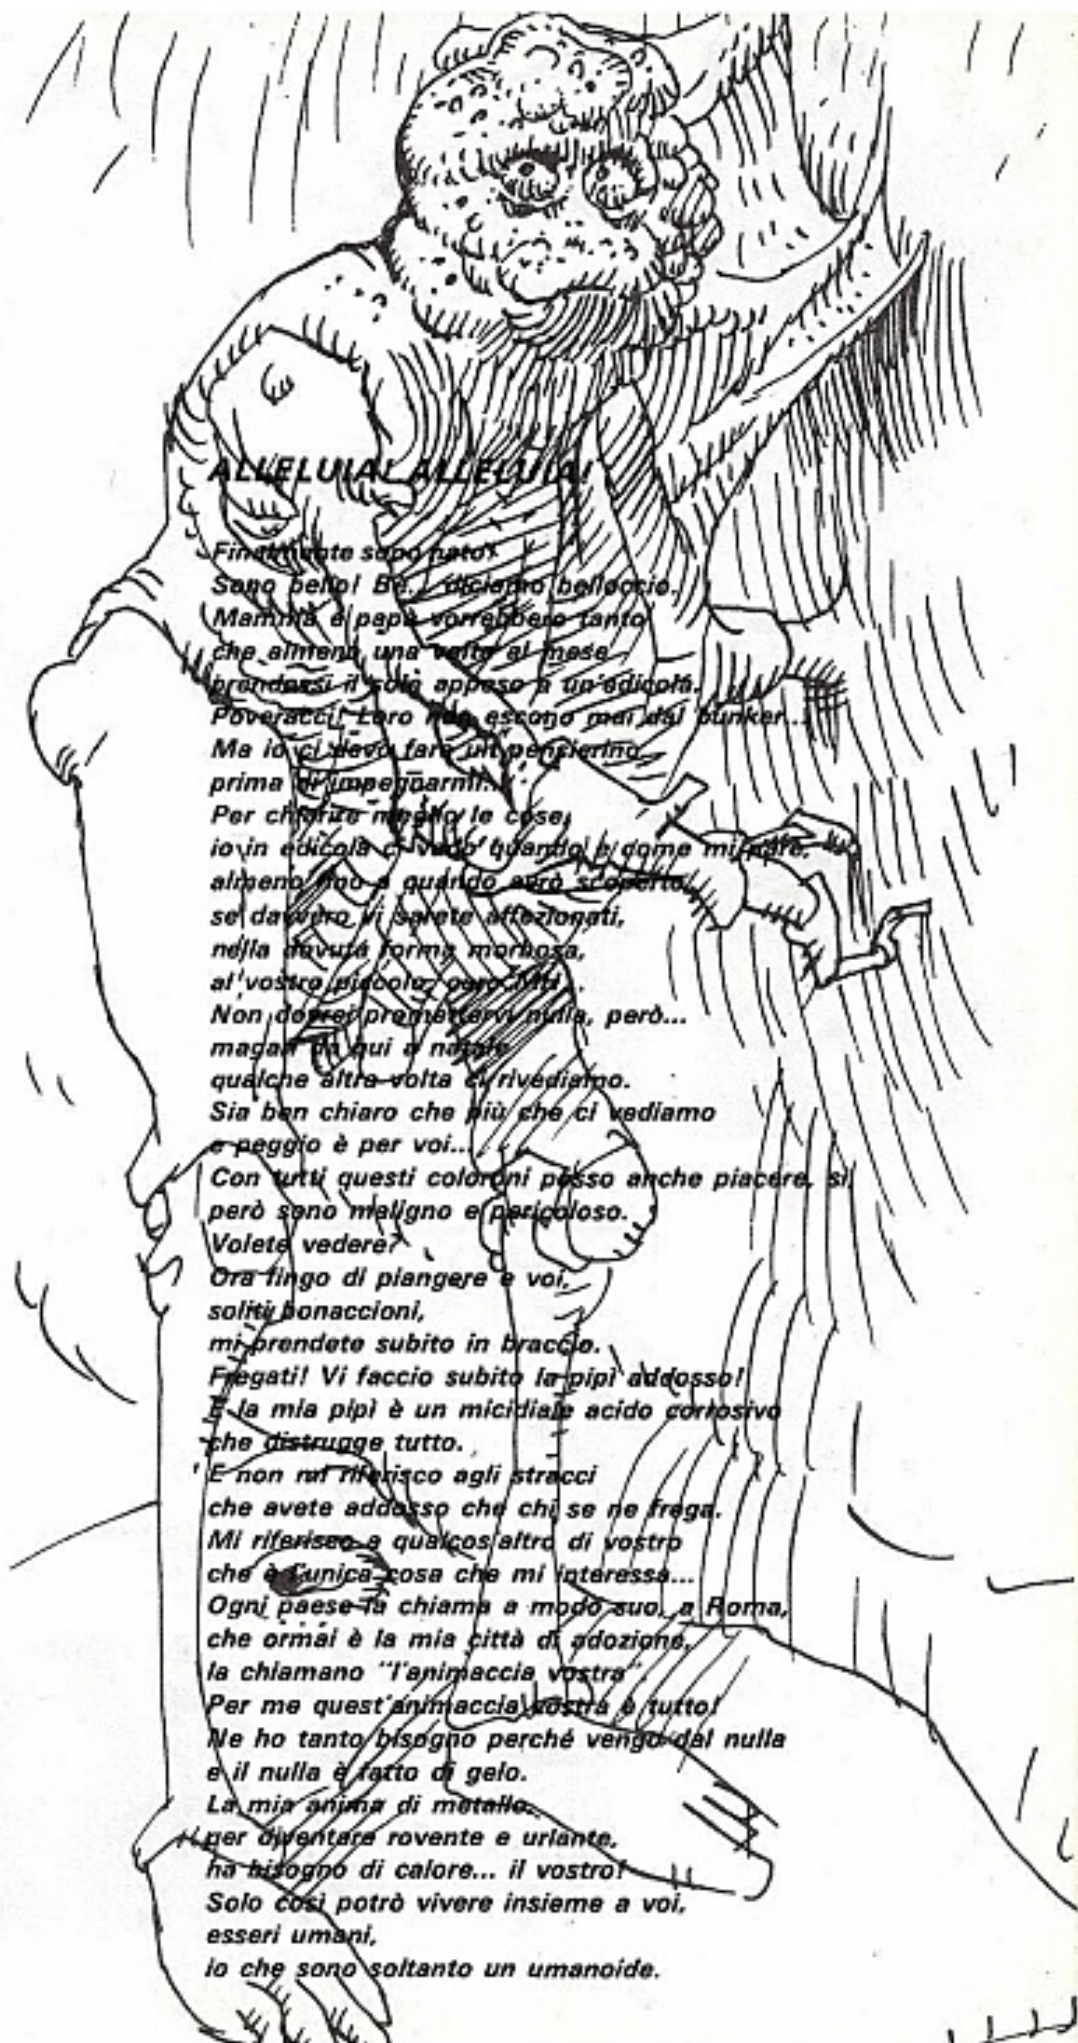 ALLELUIA! ALLELUIA!
Finalmente sono nato!
Sono bello! Be... diciamo belloccio.
Mamma e papà vorrebbero tanto
che almeno una volta al mese
prendessi il sole appeso a un'edicola.
Poveracci! Loro non escono mai dal bunker...
Ma io ci devo fare un pensierino
prima di impegnarmi...
Per chiarire meglio le cose,
io in edicola ci vado quando e come mi pare,
almeno fino a quando avrò scoperto,
se davvero vi sarete affezionati,
nella dovuta forma morbosa,
al vostro piccolo, caro
Non dovrei promettervi nulla, però...
magari da qui a natale
qualche altra volta ci rivediamo.
Sia ben chiaro che più che ci vediamo
e peggio è per voi...
Con tutti questi coloroni posso anche piacere, sì,
però sono maligno e pericoloso.
Volete vedere?
Ora fingo di piangere e voi,
soliti bonaccioni,
mi prendete subito in braccio.
Fregati! Vi faccio subito la pipì addosso!
E la mia pipì è un micidiale acido corrosivo
che distrugge tutto.
E non mi riferisco agli stracci
che avete addosso che chi se ne frega.
Mi riferisco a qualcos'altro di vostro
che è l'unica cosa che mi interessa...
Ogni paese la chiama a modo suo, a Roma,
che ormai è la mia città di adozione,
la chiamano "l'animaccia vostra".
Per me quest'animaccia vostra è tutto!
Ne ho tanto bisogno perché vengo dal nulla
e il nulla è fatto di gelo.
La mia anima di metallo,
per diventare rovente e urlante,
ha bisogno di calore... il vostro!
Solo così potrò vivere insieme a voi,
esseri umani,
io che sono soltanto un umanoide.